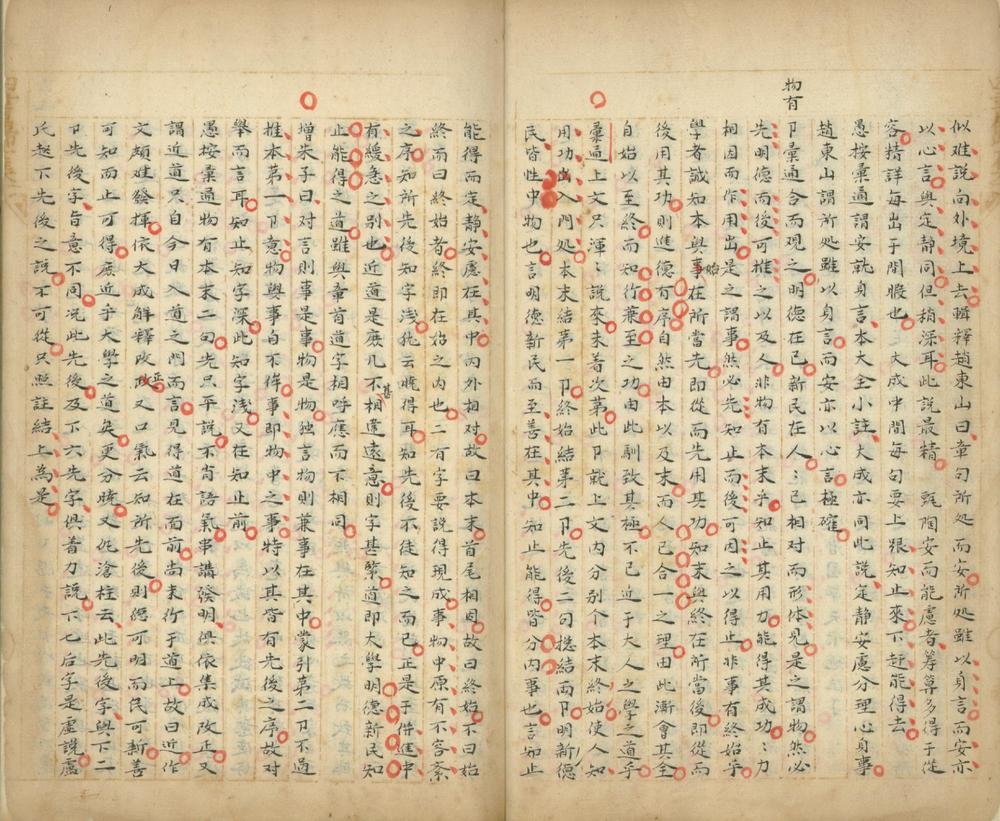 似难説向外境上去輯釋趙東山曰章句所処而安所処雖以身言而安亦
以心言與定静同但稍深耳此説最精 甄陶安而能慮者筭多得于從
容精詳每出于閒暇也 大成中間每句要上跟知止來下赶能得去
愚按彙通謂安就身言本大全小註大成亦同此説定静安慮分理心身事
趙東山謂所処雖以身言而安亦以心言極確
物有
卩彙通合而观之明德在已新民在人ミ已相对而形体見是之謂物然必
先明德而後可推之以及人非物有本末乎知止其用力能得其成功ミ力
相因而作用出是之謂事然必先知止而後可因之以得止非事有终始乎
學者誠知本與始在所當先即從而先用其功知末與終在所當後即從而
後用其功則進德有序自然由本以及末而人已合一之理由此漸會其全
自始以至終而知行兼至之功由此馴致其極不已近于大人之學之道乎
彙通上文只渾ミ説來末着次第此卩就上文内分别个本末终始使人知
用功出入門処本末結第一卩终始結第二卩先後二句揔結兩卩明新德
民皆性中物也言明德新民而至善在其中知止能得皆分内事也言知止
能得而定静安慮在其中内外相对故曰本末首尾相因故曰终始不曰始
終而曰终始者終即在始之内也二有字要説得現成事物中原有不容紊
之序知所先後知字浅犹云曉得耳知先後不徒知之而已正是于件進中
有緩急之别也近道是庶几不甚相違遠意則字甚緊道即大學明德新民知
止能得之道雖與章首道字相呼應而下相同
增朱子曰对言則事是事物是物独言物則兼事在其中蒙引第二卩不過
推本第一卩意物與事自不侔事即物中之事特以其皆有先後之序故对
舉而言耳知止知字深此知字浅又在知止前
愚按彙通物有本末二句先只平説不肯語氣串講發明俱依集成改正又
謂近道只自今日入道之門而言見得道在面前尚未行于道上故曰近作
文頗难發揮依大成解釋改正又口氣云知所先後則德可明而民可新善
可知而止可得庶近乎大學之道矣更分曉又仇滄柱云此先後字與下二
卩先後字旨意不同况此先後及下六先字俱着力説下七后字是虚説盧
氏起下先後之説不可從只照註結上為是